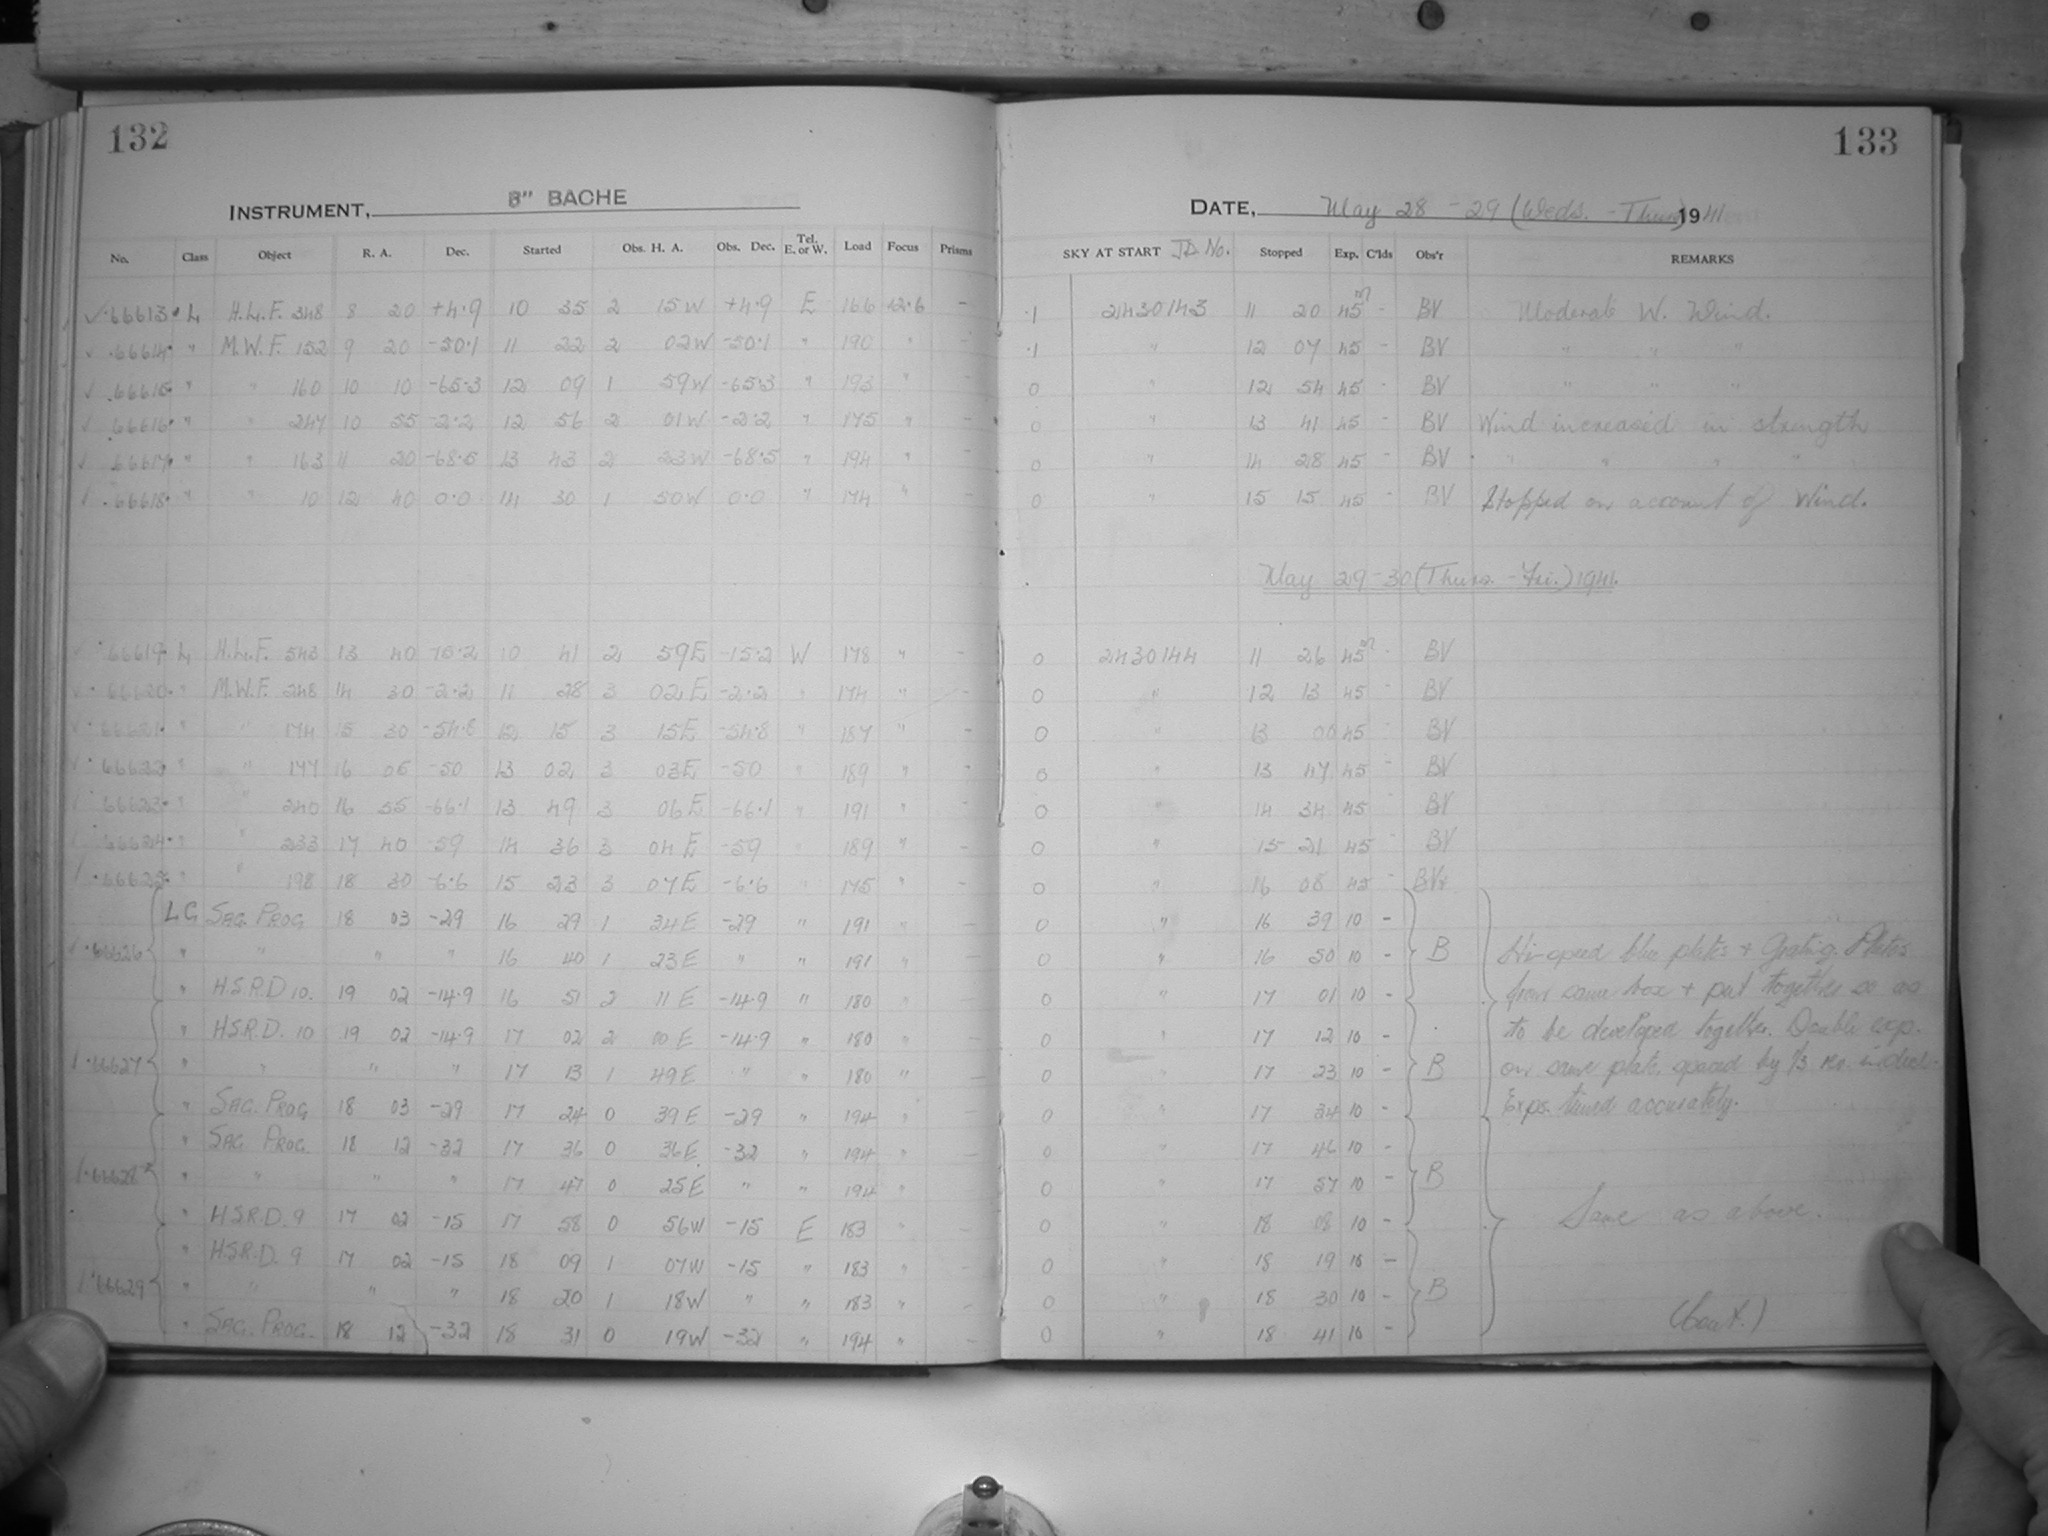 132
INSTRUMENT, 8" BACHE
No. Class Object R. A. Dec. Started Obs. H. A. Obs. Dec. Tel. E. or W. Load Focus Prisms
66613 L H.L.F. 348 8 20 +4.9 10 35 2 15W +4.9 E 166 12.6 -
66614 " M.W.F. 152 9 20 -50.1 11 22 2 02W -50.1 " 190 " -
66615 " " 160 10 10 -65.3 12 09 1 59W -65.3 " 193 " -
66616 " " 247 10 55 -2.2 12 56 2 01W -2.2 " 175 " -
66617 " " 163 11 20 -68.5 13 43 2 23W -68.5 " 194 " -
66618 " " 10 12 40 0.0 14 30 1 50W 0.0 " 174 " -
66619 L H.L.F. 543 13 40 -15.2 10 41 2 59E -15.2 W 178 " -
66620 " M.W.F. 248 14 30 -2.2 11 28 3 02E -2.2 " 174 " -
66621 " " 174 15 30 -54.8 12 15 3 15E -54.8 " 187 " -
66622 " " 177 16 05 -50 13 02 3 03E -50 " 189 " -
66623 " " 240 16 55 -66.1 13 49 3 06E -66.1 " 191 " -
66624 " " 233 17 40 -59 14 36 3 04E -59 " 189 " -
66625 " " 198 18 30 -6.6 15 23 3 07E -6.6 " 175 " -
LG SAG. PROG 18 03 -29 16 29 1 34E -29 " 191 " -
66626 " " " " 16 40 1 23E " " 191 " -
" H.S.R.D 10. 19 02 -14.9 16 51 2 11E -14.9 " 180 " -
" H.S.R.D. 10 19 02 -14.9 17 02 2 00E -14.9 " 180 " -
66627 " " " " 17 13 1 49E " " 180 " -
" SAG. PROG 18 03 -29 17 24 0 39E -29 " 194 " -
" SAG PROG. 18 12 -32 17 36 0 36E -32 " 194 " -
66628 " " " " 17 47 0 25E " " 194 " -
" H.S.R.D. 9 17 02 -15 17 58 0 56W -15 E 183 " -
" H.S.R.D. 9 17 02 -15 18 09 1 07W -15 " 183 " -
66629 " " " " 18 20 1 18W " " 183 " -
" SAG. PROG. 18 12 -32 18 31 0 19W -32 " 194 " -
133
DATE, May 28 - 29 (Weds. - Thurs) 1941
SKY AT START J.D. No. Stopped Exp. C'lds Obs'r REMARKS
.1 2430143 11 20 45m - BV Moderate W. Wind.
.1 " 12 07 45 - BV " " "
0 " 12 54 45 - BV " " "
0 " 13 41 45 - BV Wind increased in strength
0 " 14 28 45 - BV " " " "
0 " 15 15 45 - BV Stopped on account of Wind.
May 29-30 (Thurs. - Fri.) 1941.
0 2430144 11 26 45m - BV
0 " 12 13 45 - BV
0 " 13 00 45 - BV
0 " 13 47 45 - BV
0 " 14 34 45 - BV
0 " 15 21 45 - BV
0 " 16 08 45 - BV
0 " 16 39 10 -
0 " 16 50 10 - B Hi-speed blue plates + Grating. Plates
0 " 17 01 10 - from same box + put together so as
0 " 17 12 10 - to be developed together. Double exp.
0 " 17 23 10 - B on same plate spaced by 1/3 rev.
0 " 17 34 10 - Exps. timed accurately.
0 " 17 46 10 -
0 " 17 57 10 - B
0 " 18 08 10 - Same as above.
0 " 18 19 10 -
0 " 18 30 10 - B
0 " 18 41 10 - (Cont.)